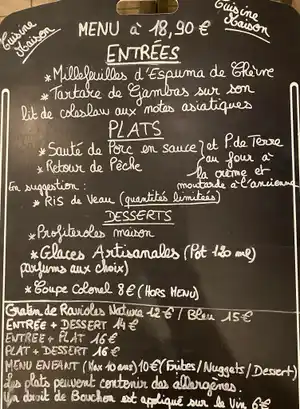 Cuisine Maison
Cuisine Maison
MENU à 18,90 €
ENTRÉES
* Millefeuilles d'Espuma de Chèvre
* Tartare de Gambas sur son
lit de coleslaw aux notes asiatiques
PLATS
* Sauté de Porc en sauce } et P. de Terre
* Retour de Pêche } au four à
la crème et
moutarde à l'ancienne
En suggestion :
* Ris de Veau (quantités limitées)
DESSERTS
* Profiteroles maison
* Glaces Artisanales (Pot 120 ml)
parfums aux choix)
* Coupe Colonel 8 € (HORS MENU)
Gratin de Ravioles Nature 12 € / Bleu 15 €
ENTRÉE + DESSERT 14 €
ENTRÉE + PLAT 16 €
PLAT + DESSERT 16 €
MENU ENFANT (Max 10 ans) 10 € (Frites/Nuggets/Dessert)
Les plats peuvent contenir des allergènes.
Un droit de Bouchon est appliqué sur le Vin 6 €